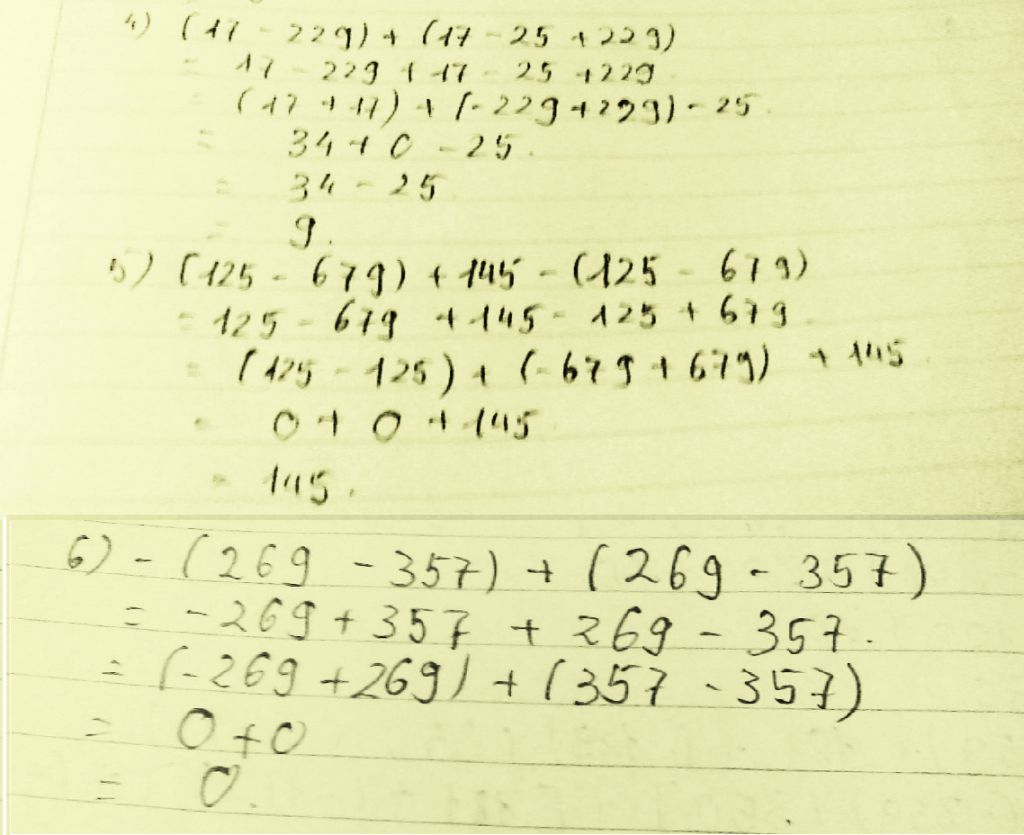 4) (17 - 229) + (17 - 25 + 229)
= 17 - 229 + 17 - 25 + 229
= (17 + 17) + (-229 + 229) - 25.
= 34 + 0 - 25.
= 34 - 25
= 9.
5) (125 - 679) + 145 - (125 - 679)
= 125 - 679 + 145 - 125 + 679.
= (125 - 125) + (-679 + 679) + 145
= 0 + 0 + 145
= 145.
6) - (269 - 357) + (269 - 357)
= -269 + 357 + 269 - 357.
= (-269 + 269) + (357 - 357)
= 0 + 0
= 0.